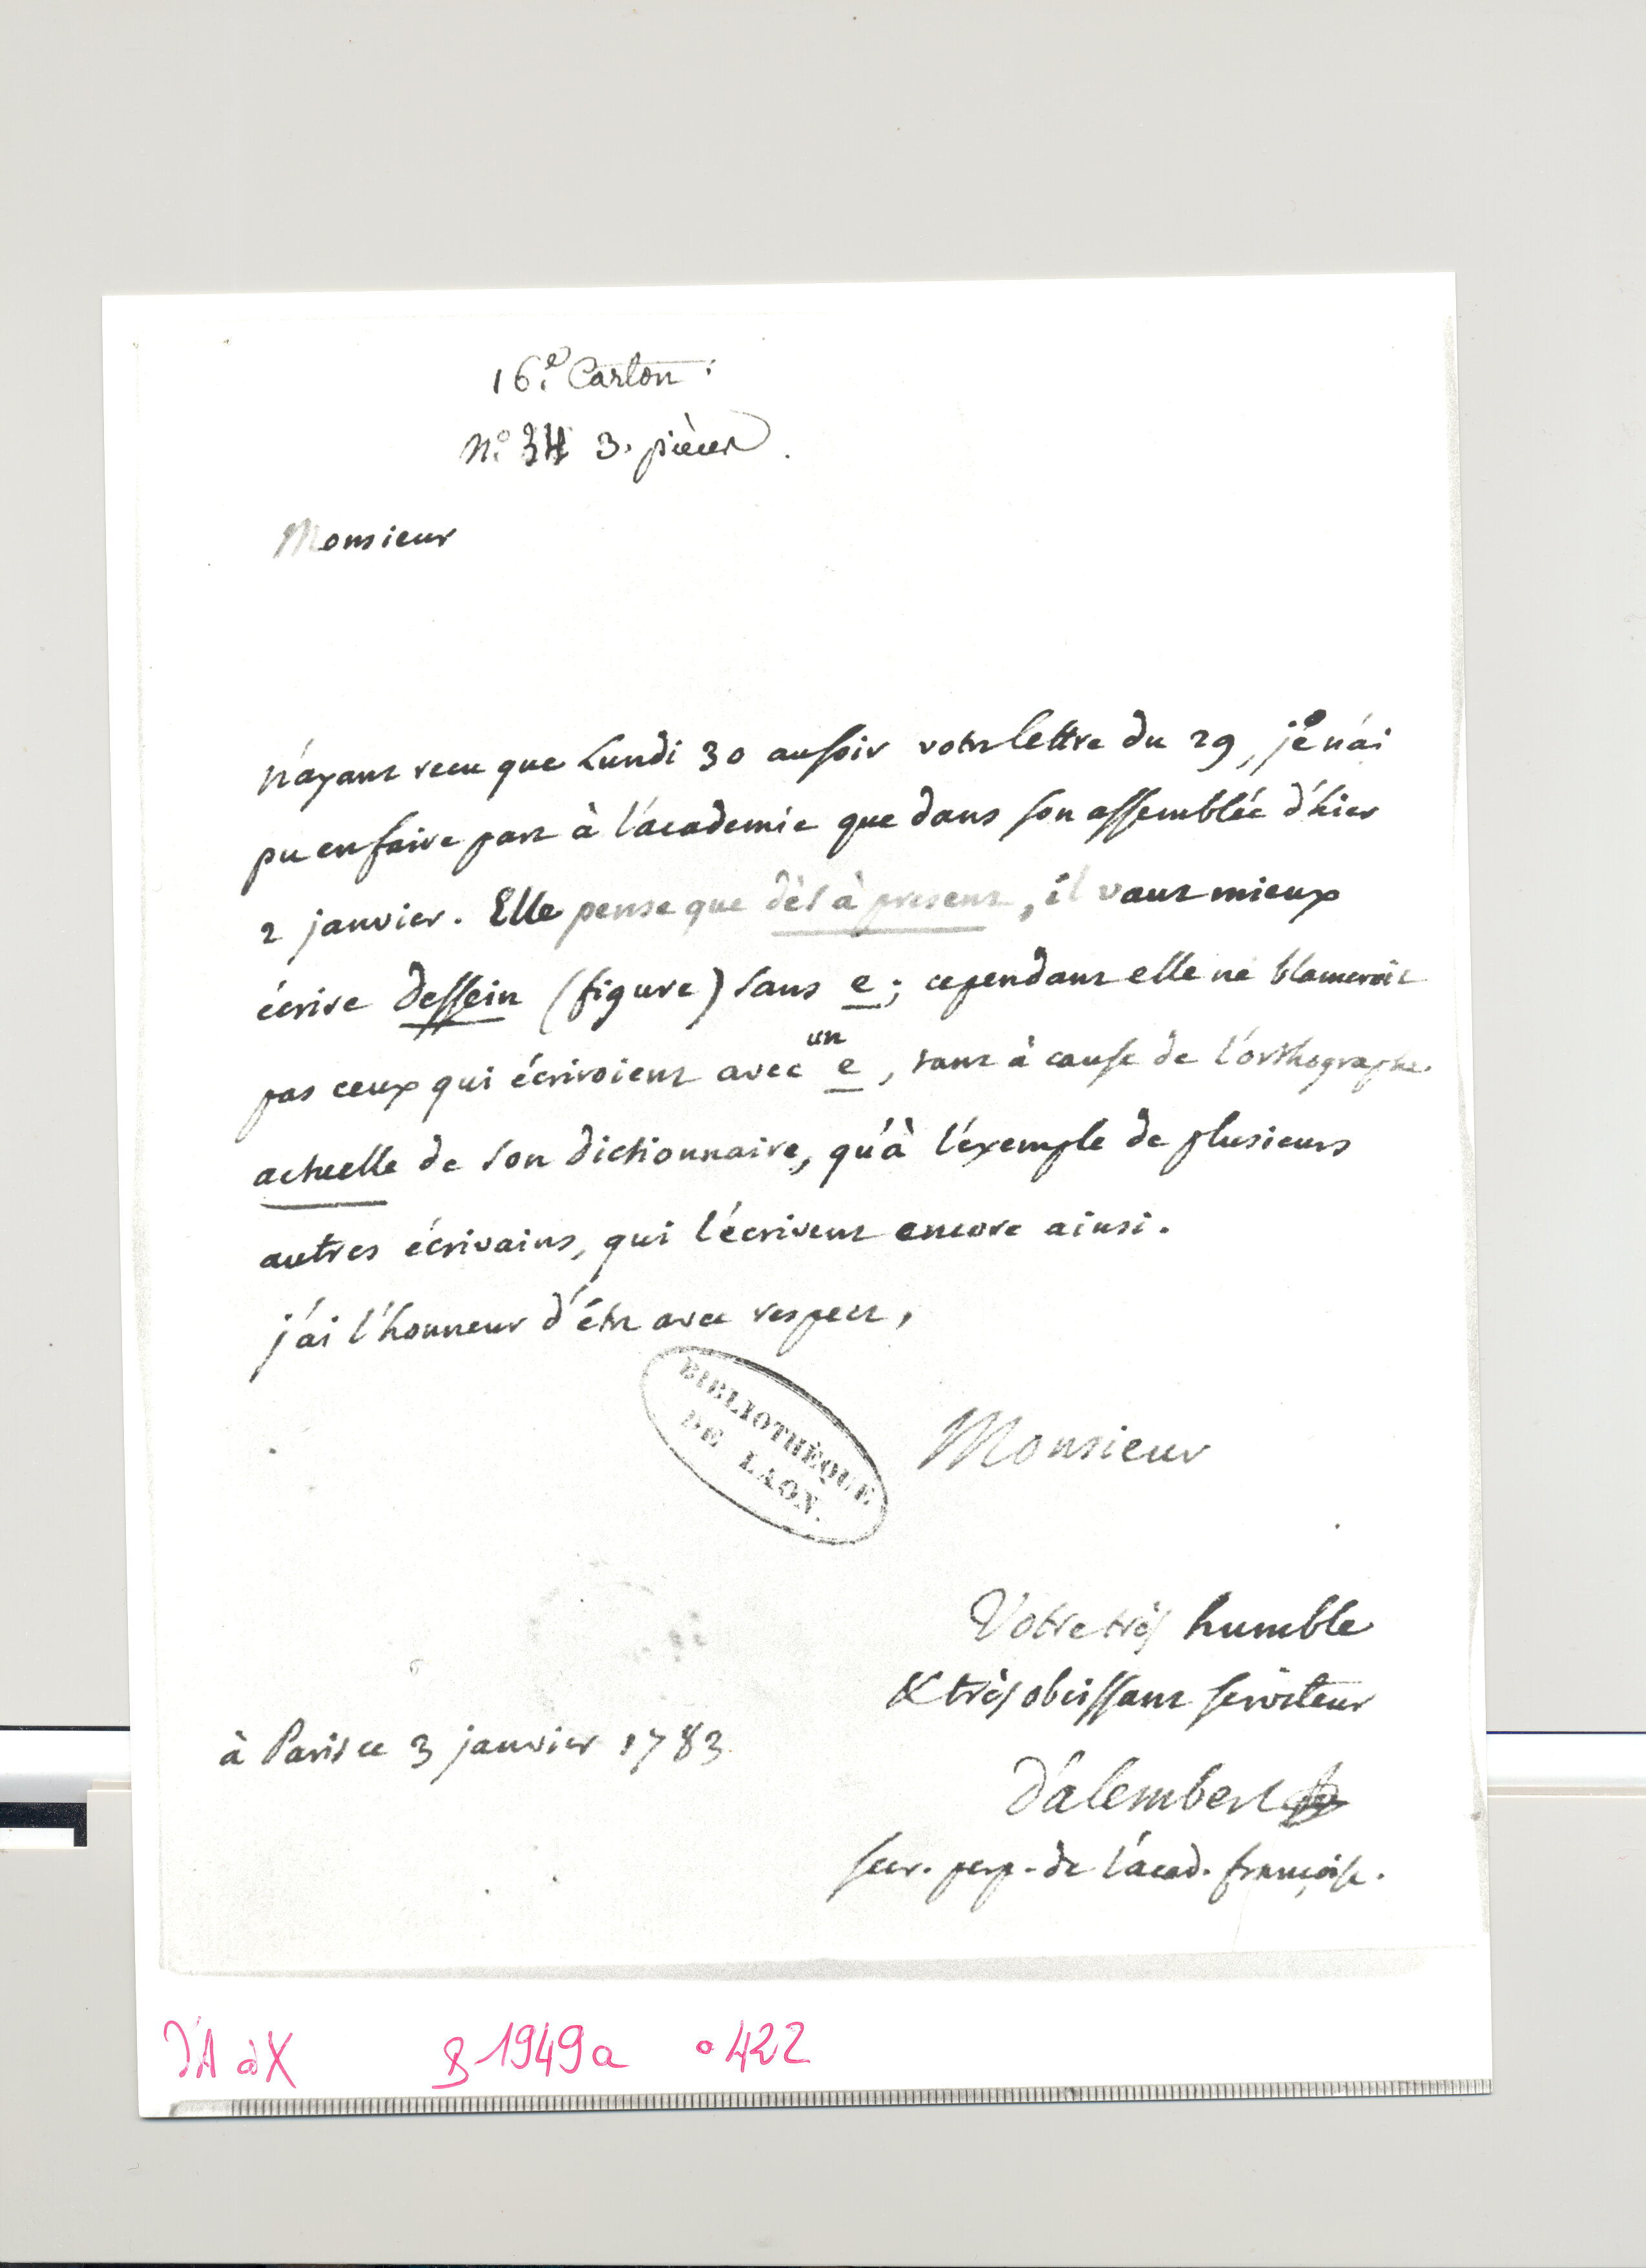 16.e Carton :
N.o 34 3. pièces .
Monsieur
n'ayant recu que Lundi 30 au soir votre lettre du 29, je n'ai
pu en faire part à l'academie que dans son assemblée d'hier
2 janvier. Elle pense que dès à present, il vaut mieux
écrire dessein (figure) sans e ; cependant elle ne blameroit
un
pas ceux qui écriroient avec e , tant à cause de l'orthographe
actuelle de son dictionnaire, qu'à l'exemple de plusieurs
autres écrivains, qui l'ecrivent encore ainsi.
j'ai l'honneur d'être avec respect,
BIBLIOTHÈQUE
DE LAON.
Monsieur
Votre très humble
& très obeissant serviteur
à Paris ce 3 janvier 1783
D'alembert
secr. perp. de l'acad. françoise.
D'A à X 1949a 422